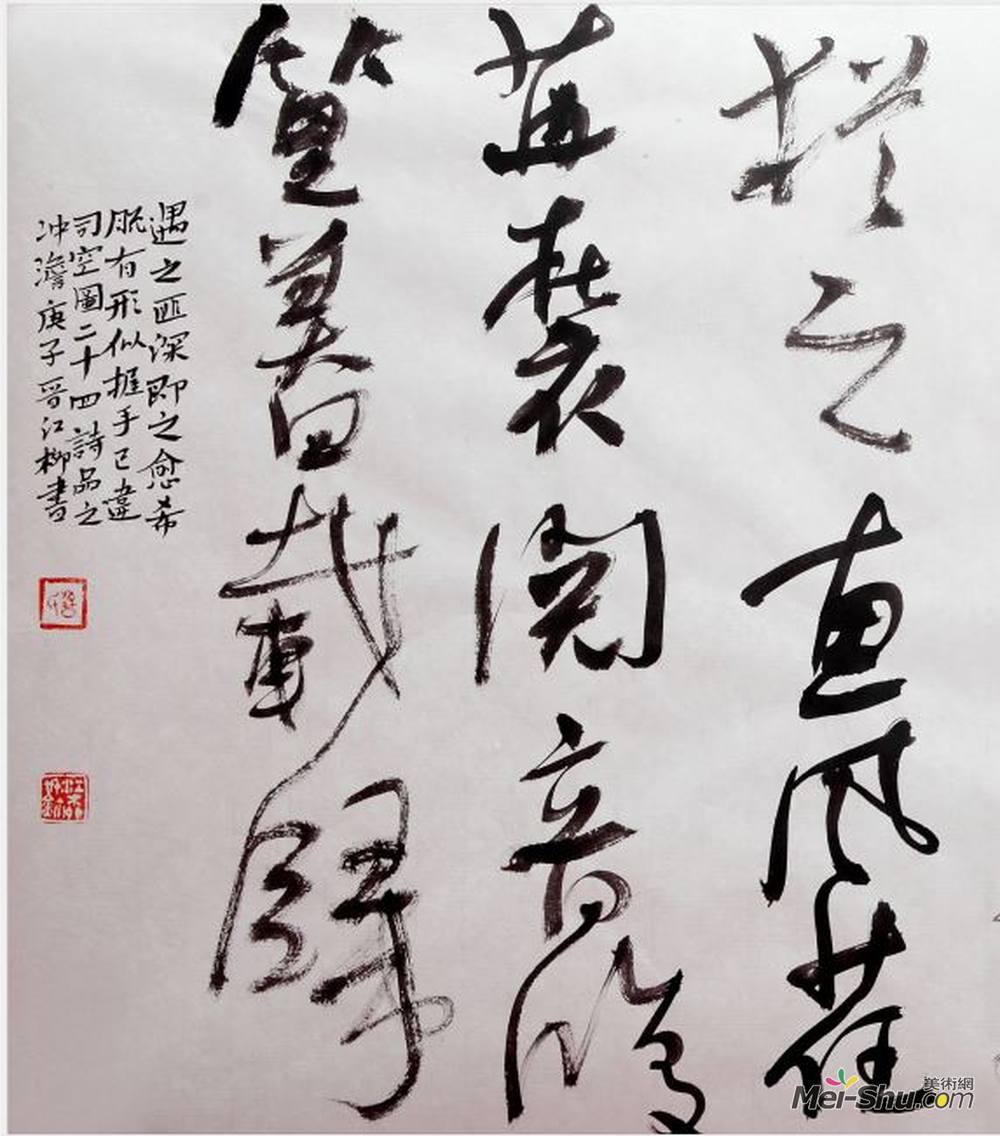 猶之惠風荏
苒在衣閱音修
篁美曰載歸
遇之匪深即之愈希
脫有形似握手已違
司空圖二十四詩品之
沖澹庚子晉江柳書
美術網
Mei-Shu.com